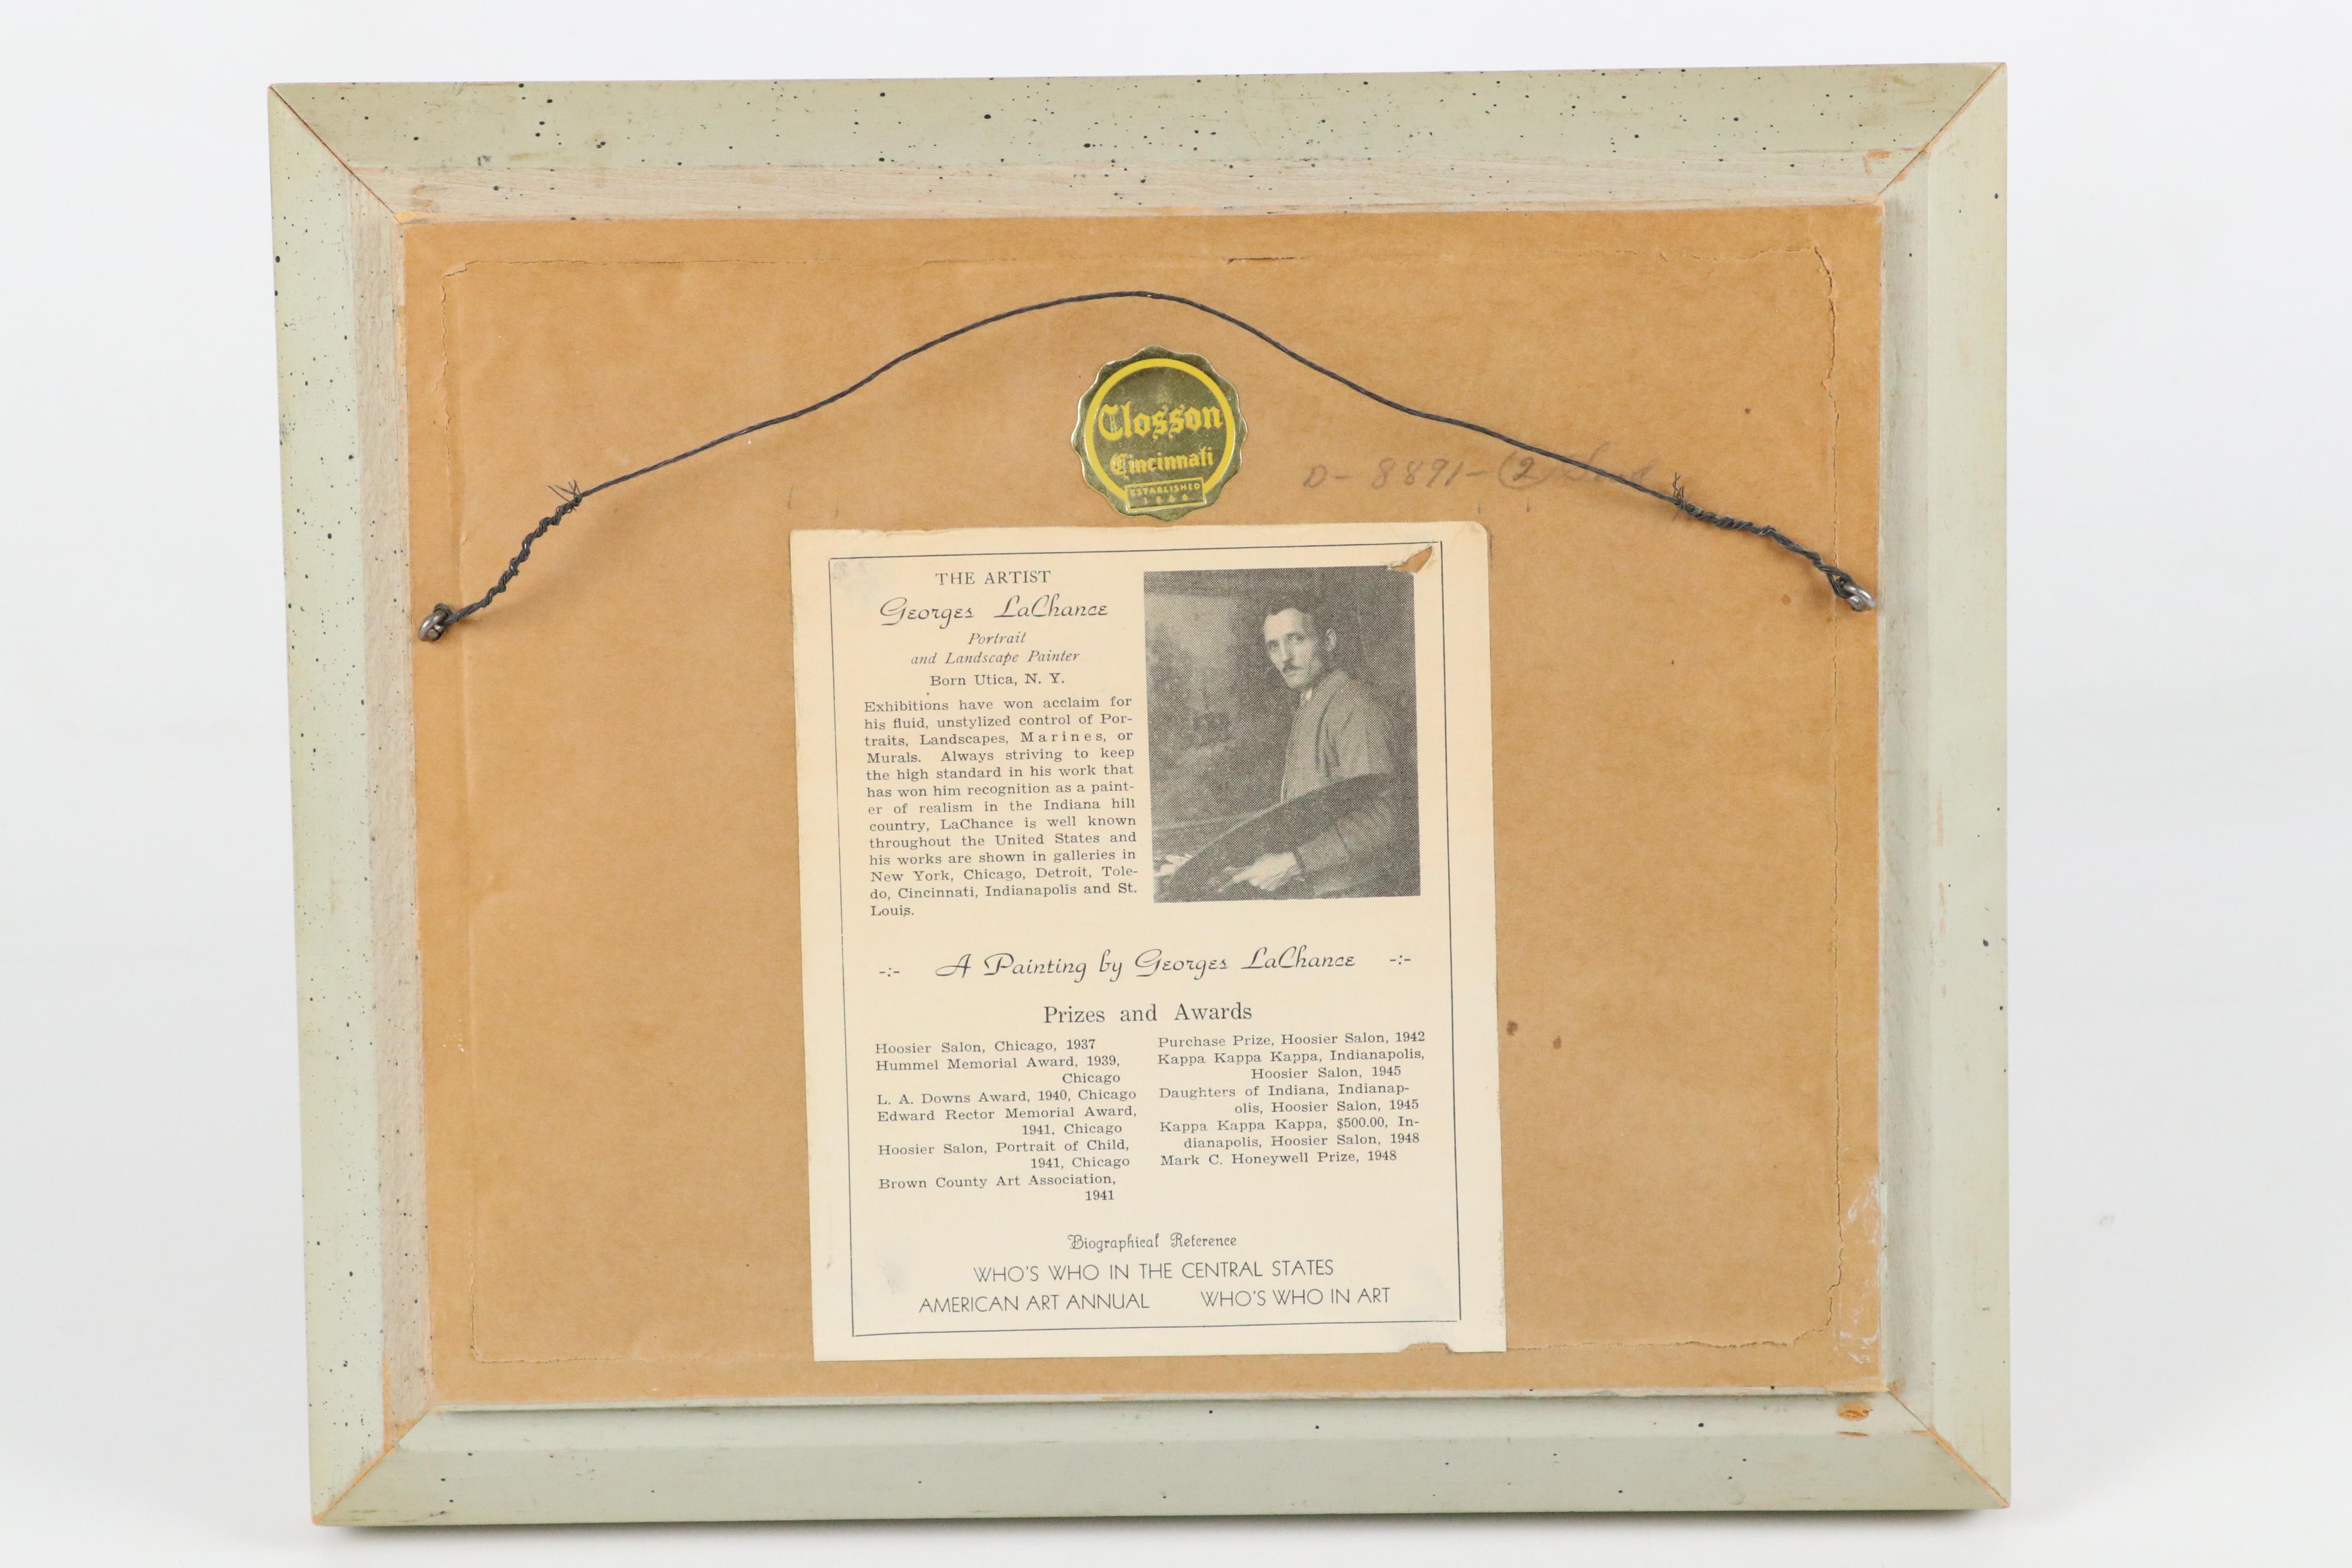 Closson
Cincinnati
ESTABLISHED
1866
D-8891-2
THE ARTIST
Georges LaChance
Portrait
and Landscape Painter
Born Utica, N. Y.
Exhibitions have won acclaim for
his fluid, unstylized control of Por-
traits, Landscapes, Marines, or
Murals. Always striving to keep
the high standard in his work that
has won him recognition as a paint-
er of realism in the Indiana hill
country, LaChance is well known
throughout the United States and
his works are shown in galleries in
New York, Chicago, Detroit, Tole-
do, Cincinnati, Indianapolis and St.
Louis.
-:- A Painting by Georges LaChance -:-
Prizes and Awards
Hoosier Salon, Chicago, 1937
Hummel Memorial Award, 1939,
Chicago
L. A. Downs Award, 1940, Chicago
Edward Rector Memorial Award,
1941, Chicago
Hoosier Salon, Portrait of Child,
1941, Chicago
Brown County Art Association,
1941
Purchase Prize, Hoosier Salon, 1942
Kappa Kappa Kappa, Indianapolis,
Hoosier Salon, 1945
Daughters of Indiana, Indianap-
olis, Hoosier Salon, 1945
Kappa Kappa Kappa, $500.00, In-
dianapolis, Hoosier Salon, 1948
Mark C. Honeywell Prize, 1948
Biographical Reference
WHO'S WHO IN THE CENTRAL STATES
AMERICAN ART ANNUAL WHO'S WHO IN ART